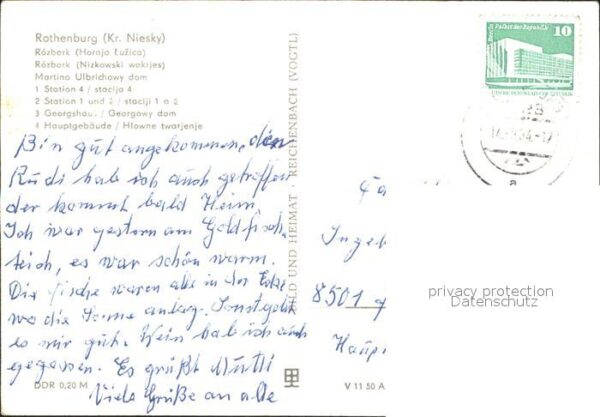 Rothenburg (Kr. Niesky)
Rózbork (Hornja Łužica)
Rózbork (Nizkowski wokrjes)
Martina Ulbrichowy dom
1 Station 4 / stacija 4
2 Station 1 und 2 / staciji 1 a 2
3 Georgshaus / Georgowy dom
4 Hauptgebäude / Hłowne twarjenje
Bin gut angekommen, den
Rudi hab ich auch getroffen
der kommt bald Heim.
Ich war gestern am Goldfisch-
teich, es war schön warm.
Die Fische waren alle in der Ecke
wo die Sonne anlag. Sonst geht
es mir gut. Wein hab ich auch
gegessen. Es grüßt Mutti
Viele Grüße an alle
DDR 0,20 M
BILD UND HEIMAT REICHENBACH (VOGTL)
V 11 50 A
10
Palast der Republik
Fa
Ingeb
8501
Haup
privacy protection
Datenschutz